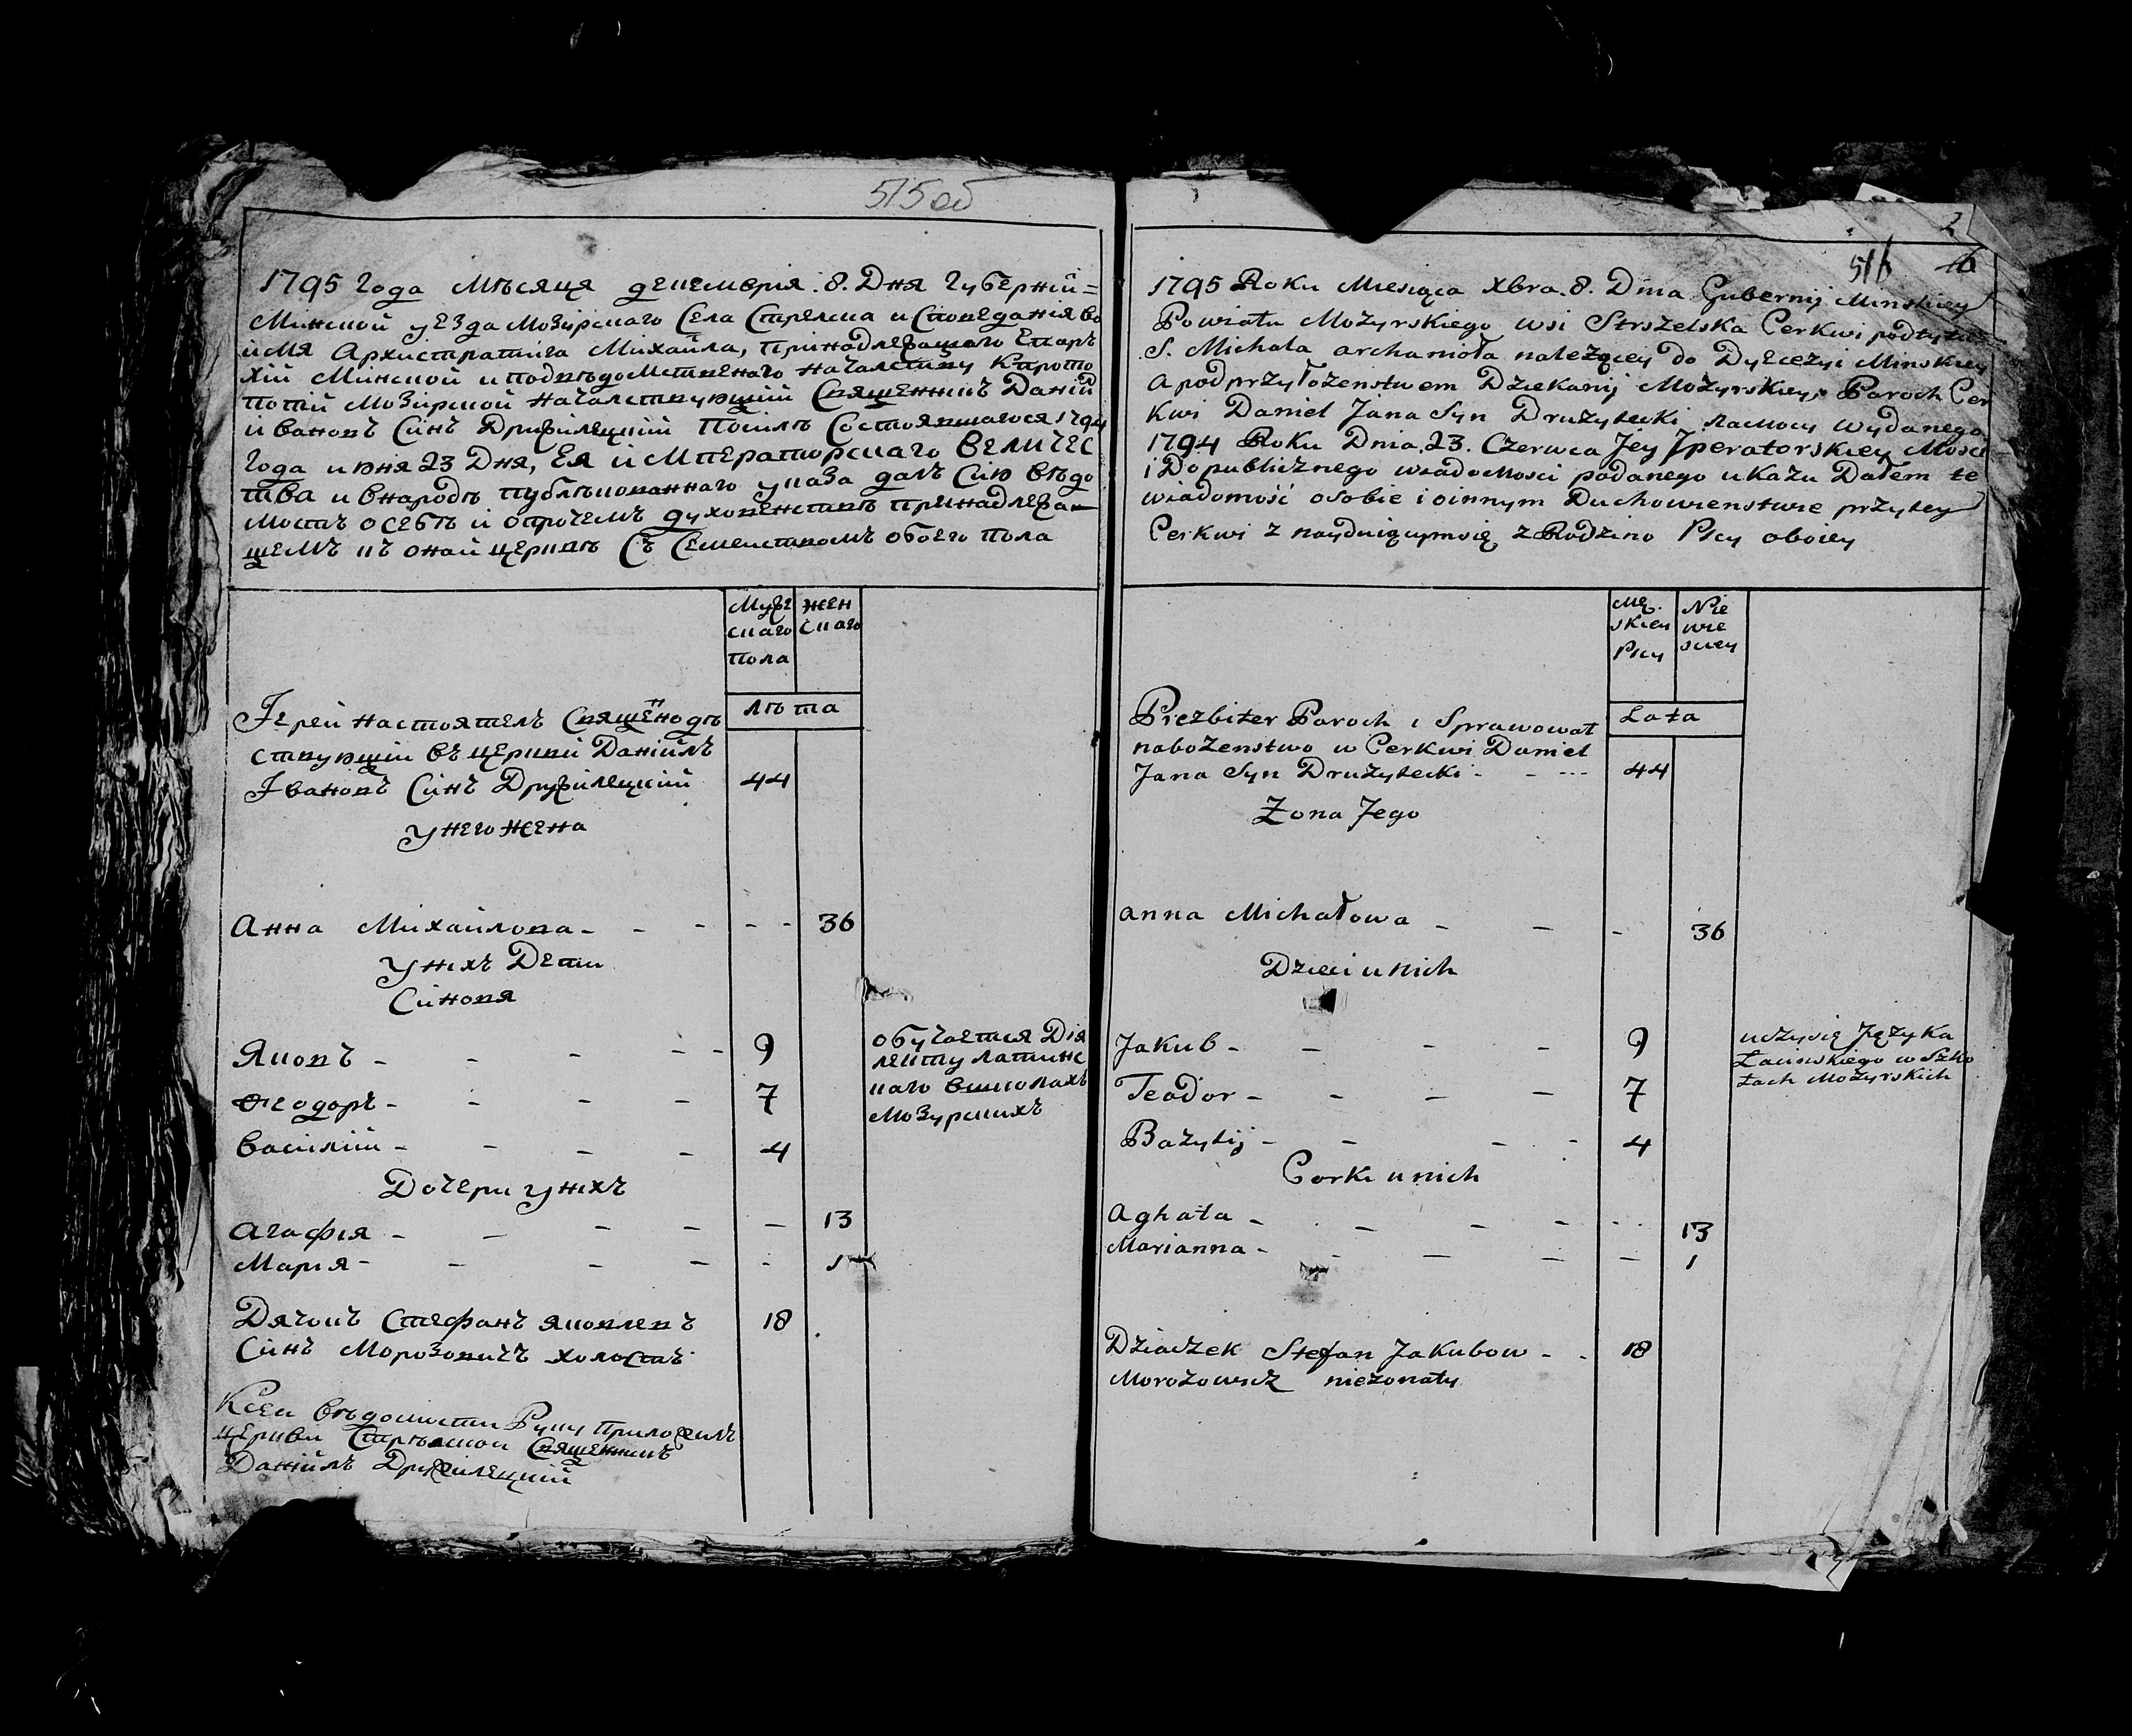 515об
1795 Года Мѣсяця декемврія .8. Дня Губерній=
Минской уезда Мозирскаго Села Стрелска
имя Архистратига Михаила, принадлежашаго Епар
хій Минской и подвѣдомственаго началству Кпрото
попій Мозирской началствующій Священникъ Даніи
Ивановъ Синъ Дружилецкий посилѣ Состоявшагося 1794
Года июня 23 Дня, Ея императорскаго ВЕЛИЧЕС
тва и внародъ публѣкованнаго указа далъ Сию вѣдо
мость осебѣ и опрочемъ духовенствѣ принадлежа
щемъ къ онай церквѣ Съ Семействомъ обоего пола
Муже
скаго
пола
жен
скаго
лѣта
Іерей настоятель Священодѣ
ствующій въ церкви Даніилъ
Івановъ Синъ Дружилецкий 44
У него жена
Анна Михайлова - - - - - 36
У нихъ Дети
Синовя
Яковъ - - - - - 9
обучается Діа
лекту латинс
каго вшколахъ
Мозурскихъ
Феодоръ - - - - 7
Василій - - - - 4
Дочери унихъ
Агафия - - - - - 13
Мария - - - - - 1
Дячокъ Стефанъ Яковлевъ 18
Синъ Морозовичъ холостъ
Ксеи вѣдомости Руку приложилъ
церкви Стрѣлской Священникъ
Даніилъ Дружилецкий
2
516
1795 Roku Miesiąca Xbra. 8. Dnia Gubernij Minskiey
Powiatu Mozyrskiego wsi Strszelska Cerkwi podtytu
S. Michała archanioła należącey do Dyecezyi Minskiey
a podprzyłożenstwem Dziekanij Mozyrskiey, Paroch Cer
kwi Daniel Jana Syn Druzyłecki namocy wydanego
1794 Roku Dnia .23. Czerwca Jey Jperatorskiey Mosci
i Dopublicznego wiadomosci podanego ukazu Dałem te
wiadomość osobie i oinnym Duchowienstwie przytey
Cerkwi znayduiącymsię z Rodzino Płcy oboiey
Mę
skiey
Płcy
Nie
wie
sciey
Lata
Prezbiter Paroch i Sprawował
nabożenstwo w Cerkwi Daniel
Jana Syn Druzyłecki - - --- 44
Żona Jego
Anna Michałowa - - - 36
Dzieci u nich
Jakub - - - - 9
uczysię Języka
Łacinskiego w Szko
łach Mozyrskich
Teodor - - - - 7
Bazylij - - - - 4
Corki u nich
Aghata - - - - - 13
Marianna - - - - - 1
Dziaczek Stefan Jakubow - - 18
Morozowicz nieżonaty